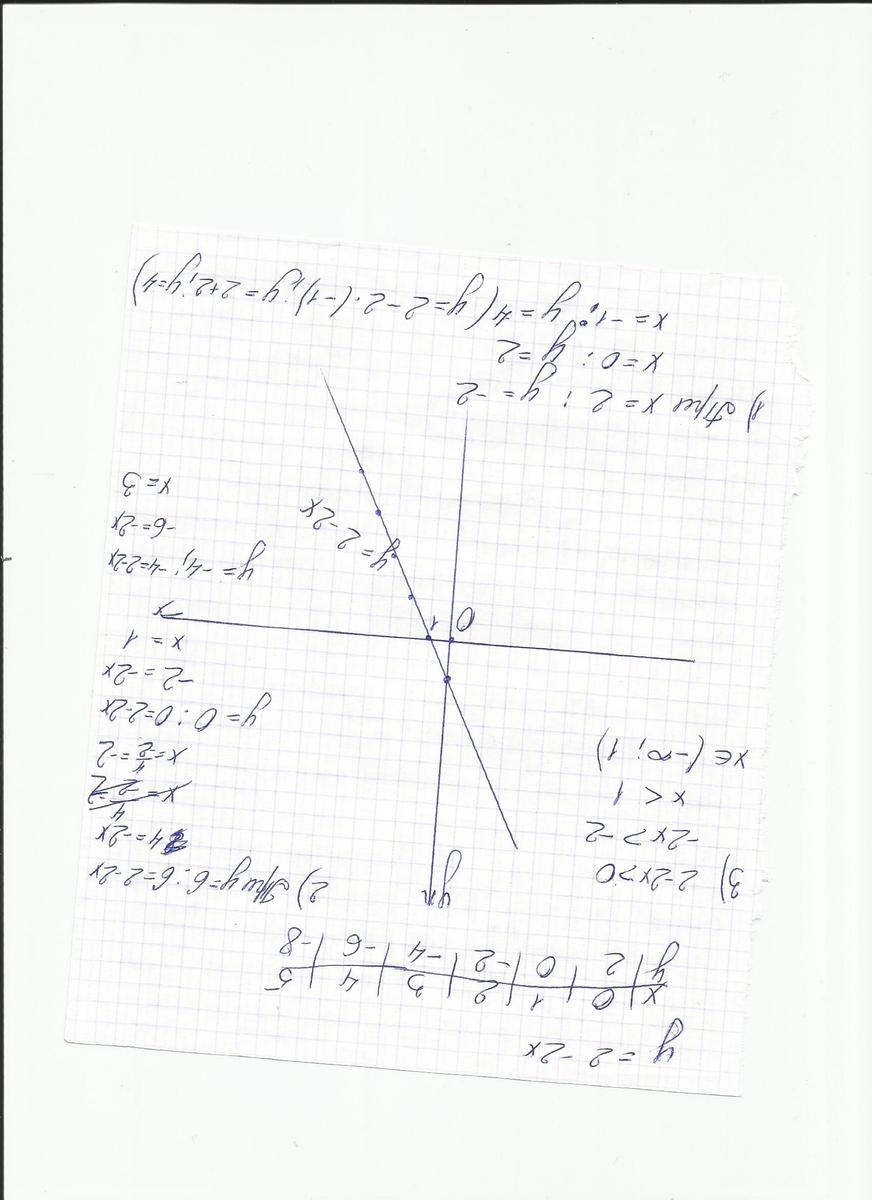 y = 2 - 2x
x | 0 | 1 | 2 | 3 | 4 | 5
y | 2 | 0 | -2 | -4 | -6 | -8
3) 2-2x>0
-2x>-2
x < 1
x∈(-∞; 1)
y
0
1
x
y=2-2x
2) При y=6: 6=2-2x
4=-2x
x=4/-2=-2
y=0: 0=2-2x
-2=-2x
x=1
y=-4; -4=2-2x
-6=-2x
x=3
1) При x=2; y=-2
x=0; y=2
x=-1; y=4 (y=2-2·(-1); y=2+2; y=4)